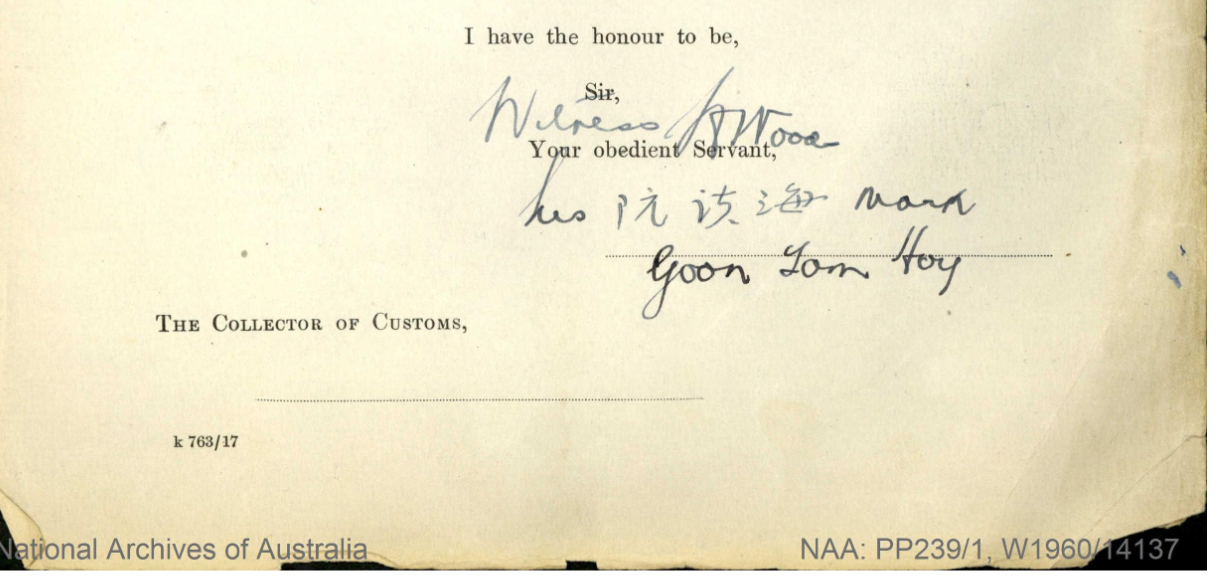 I have the honour to be,
Sir,
Witness
Your obedient Servant,
his 阮 海 mark
Goon Yom Hoy
THE COLLECTOR OF CUSTOMS,
k 763/17
National Archives of Australia
NAA: PP239/1, W1960/14137